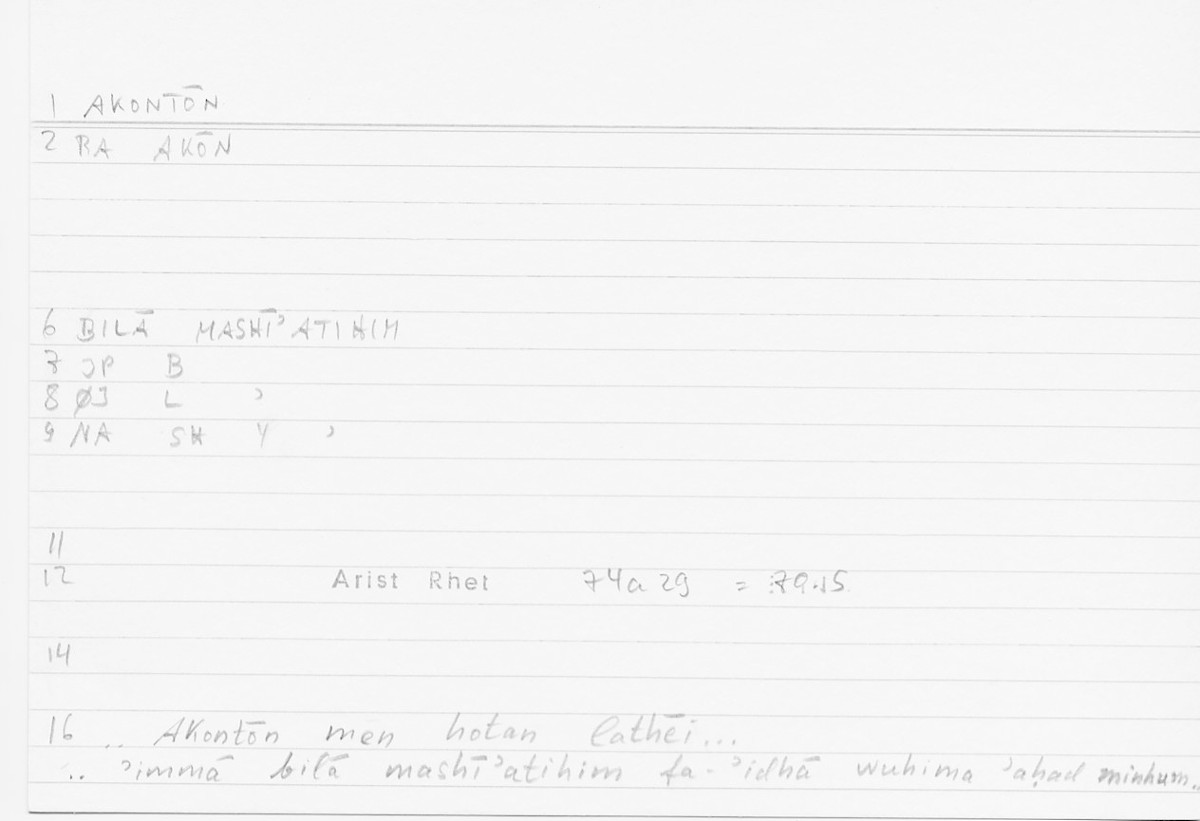 1 AKONTŌN
2 RA AKŌN
6 BILĀ MASHĪʾATIHIM
7 JP B
8 ØJ L ʾ
9 NA SH Y ʾ
11
12 Arist Rhet 74a 29 = 79.15
14
16 .. Akontōn men hotan lathēi...
.. ʾimmā bilā mashīʾatihim fa-ʾidhā wuhima ʾaḥad minhum..